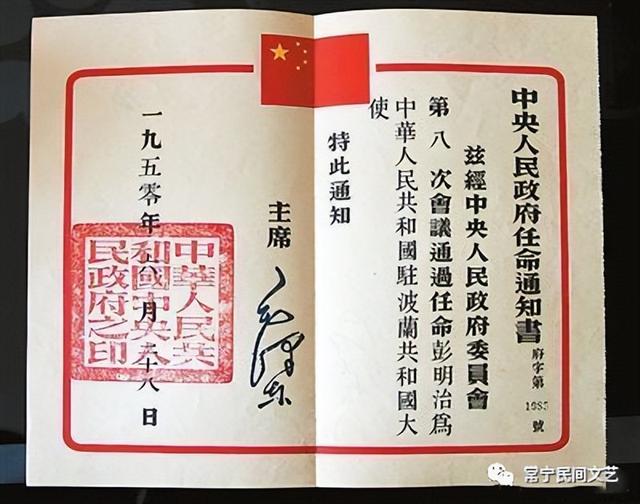 中央人民政府任命通知書
府字第 號
茲經中央人民政府委員會
第八次會議通過任命彭明治爲
中華人民共和國駐波蘭共和國大
使
特此通知
主席 毛澤東
一九五零年六月二十八日
中華人民共
和國中央人
民政府之印
常宁民间文艺